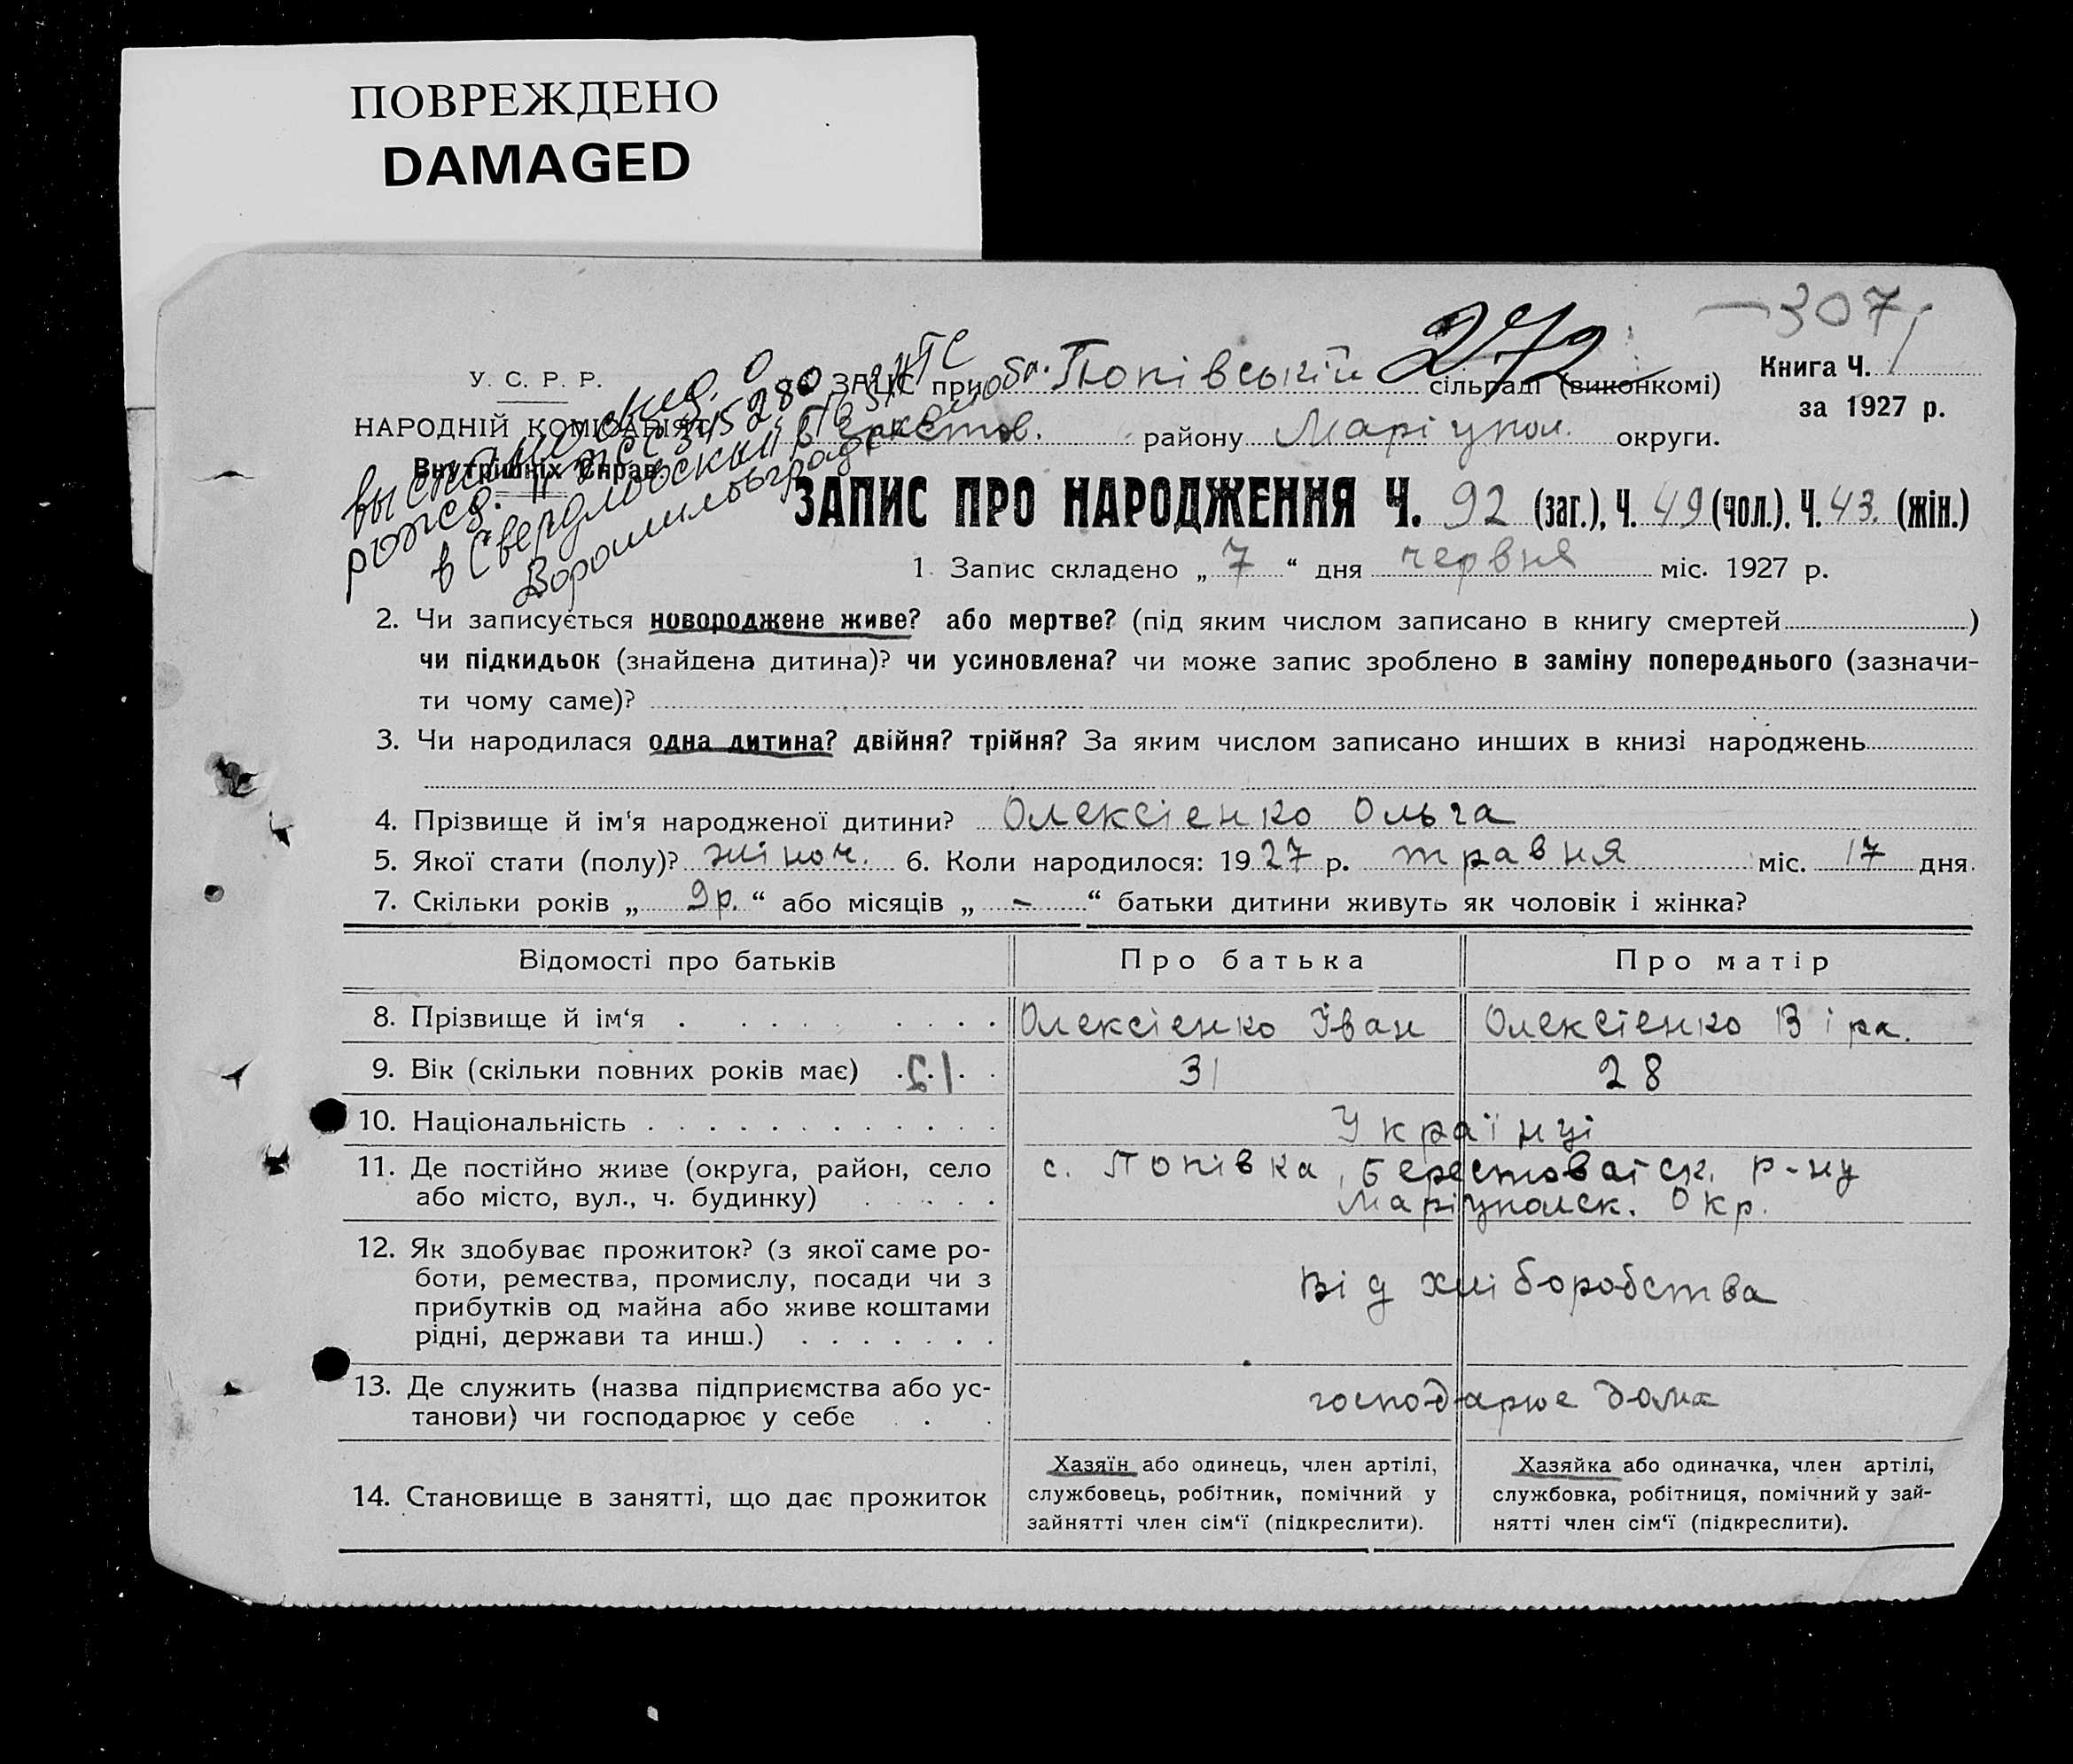 ПОВРЕЖДЕНО
DAMAGED
— 307
272
У. С. Р. Р.
НАРОДНІЙ КОМІСАРІЯТ
Внутрішніх Справ
рожд. II
в Свердловский
Ворошиловград
ЗАГС при Попівській сільраді (виконкомі)
району Маріупол. округи.
Книга Ч. 1
за 1927 р.
ЗАПИС ПРО НАРОДЖЕННЯ Ч. 92 (заг.), Ч. 49 (чол.). Ч. 43. (жін.)
1. Запис складено „ 7 “ дня червня міс. 1927 р.
2. Чи записується новороджене живе? або мертве? (під яким числом записано в книгу смертей )
чи підкидьок (знайдена дитина)? чи усиновлена? чи може запис зроблено в заміну попереднього (зазначи-
ти чому саме)?
3. Чи народилася одна дитина? двійня? трійня? За яким числом записано инших в книзі народжень
4. Прізвище й ім‘я народженої дитини? Олексієнко Ольга
5. Якої стати (полу)? жіноч. 6. Коли народилося: 1927 р. травня міс. 17 дня.
7. Скільки років „ 9 р. “ або місяців „ – “ батьки дитини живуть як чоловік і жінка?
Відомості про батьків Про батька Про матір
8. Прізвище й ім‘я Олексієнко Іван Олексієнко Віра.
9. Вік (скільки повних років має) 31 28
10. Національність Українці
11. Де постійно живе (округа, район, село с. Попівка, Берестоватск. р-ну
або місто, вул., ч. будинку) Маріуполск. Окр.
12. Як здобуває прожиток? (з якої саме ро-
боти, ремества, промислу, посади чи з
прибутків од майна або живе коштами
рідні, держави та инш.) Від хліборобства
13. Де служить (назва підприємства або ус-
танови) чи господарює у себе господарює дома
14. Становище в занятті, що дає прожиток
Хазяїн або одинець, член артілі,
службовець, робітник, помічний у
зайнятті член сім‘ї (підкреслити).
Хазяйка або одиначка, член артілі,
службовка, робітниця, помічний у зай-
нятті член сім‘ї (підкреслити).